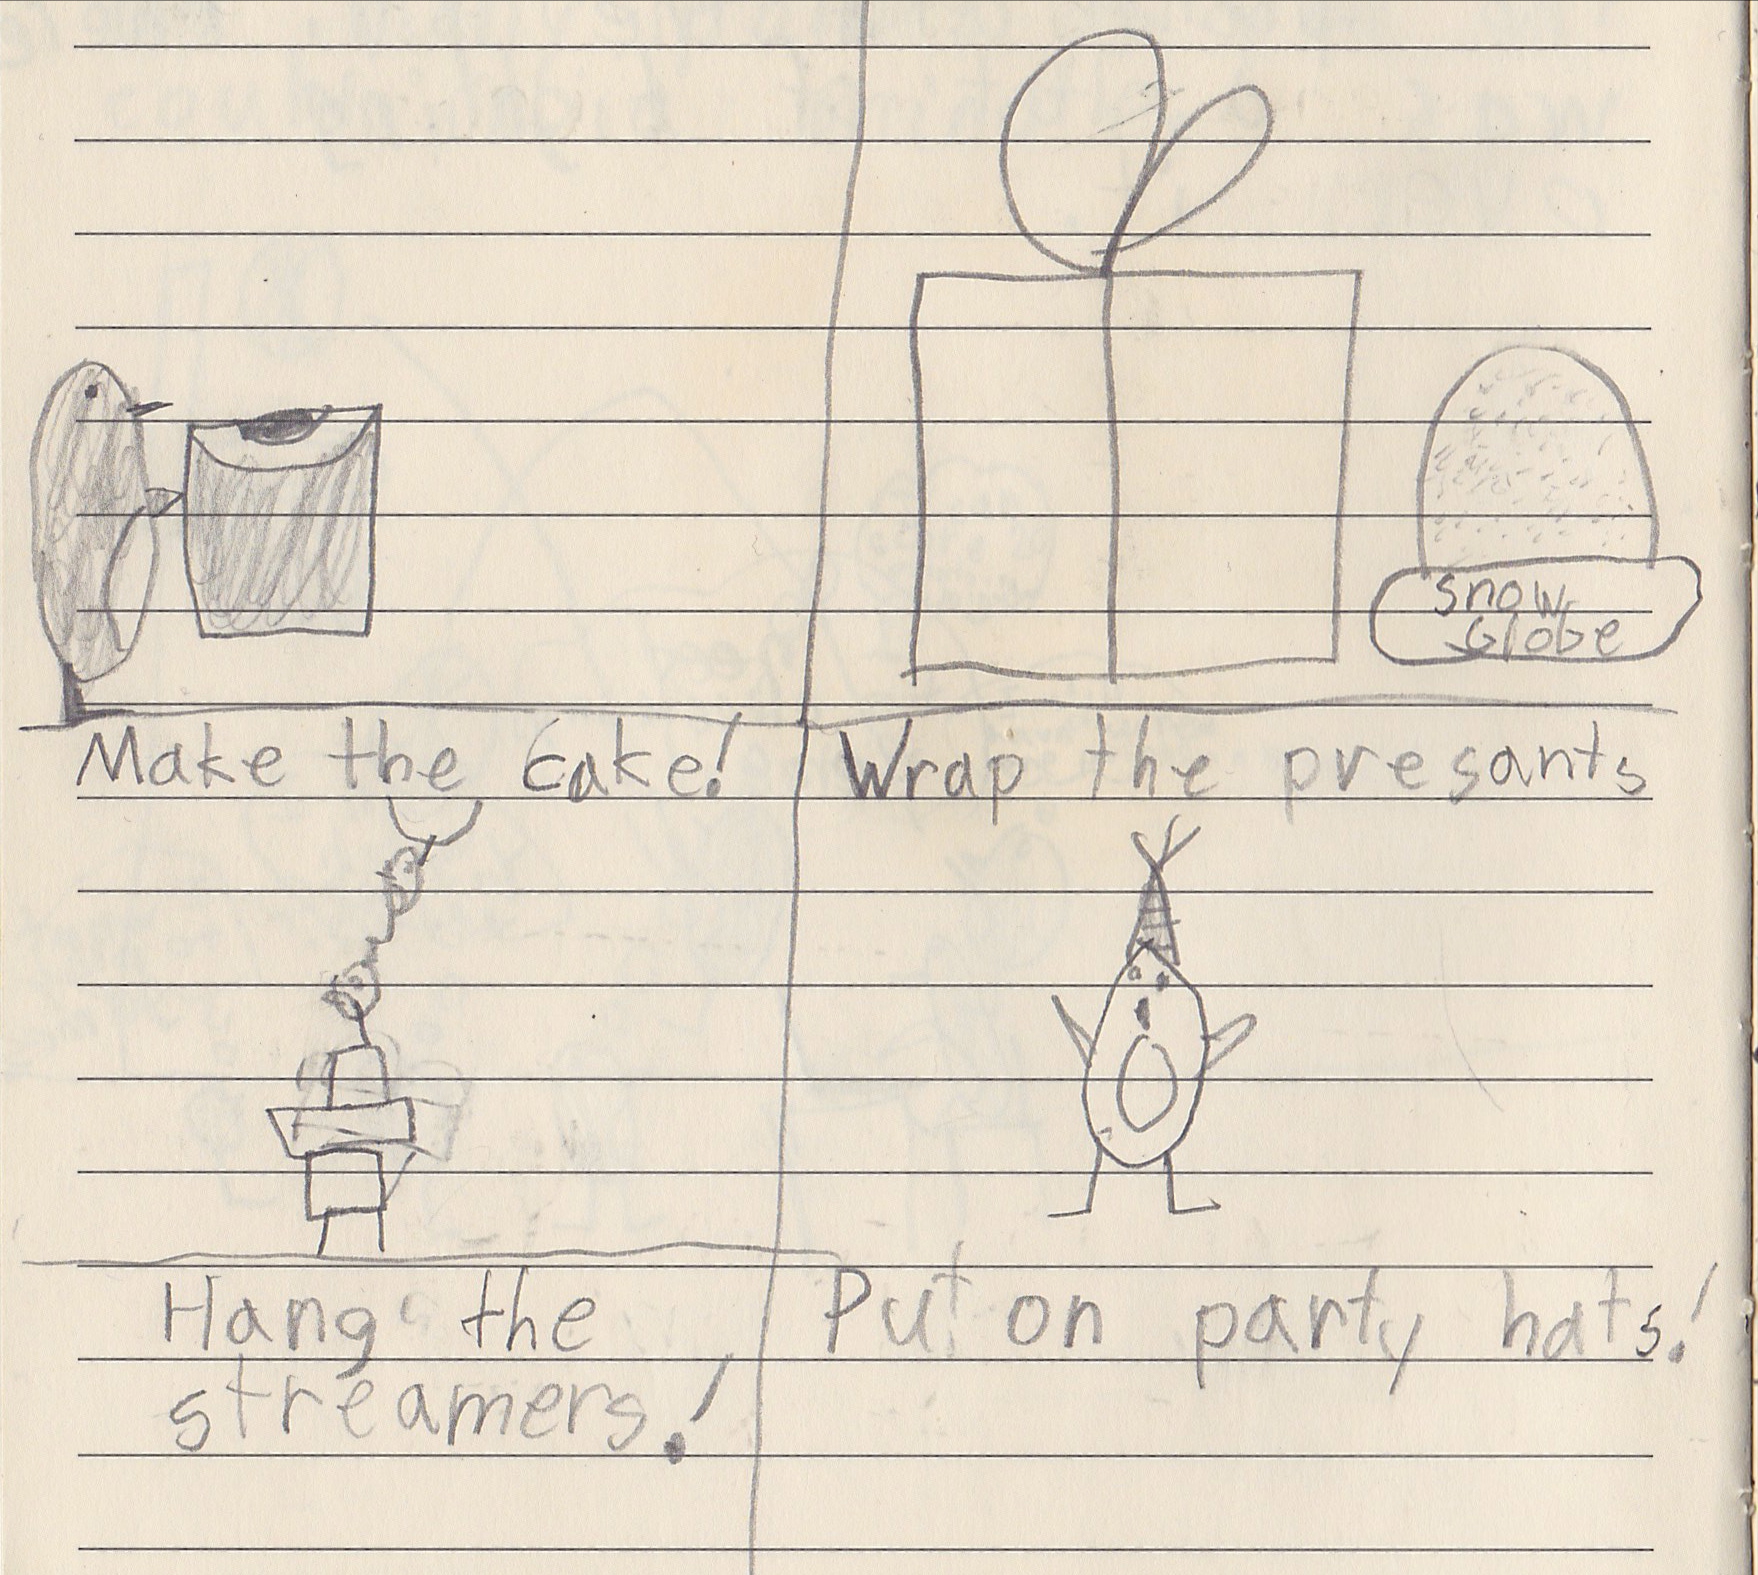 snow
Globe
Make the cake!
Wrap the presants
Hang the
streamers!
Put on party hats!